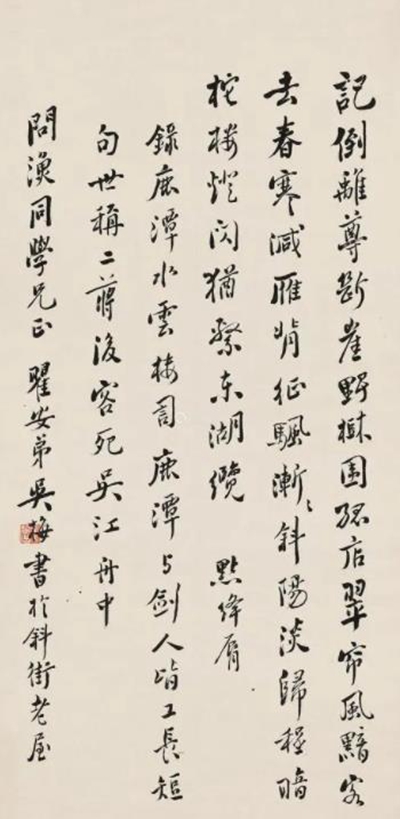 記倒離尊斷崖野樹圍孤店翠帘風颭客
去春寒減雁背征颿漸〻斜陽淡歸程暗
柁樓燈閃猶繫東湖纜　點絳脣
錄鹿潭水雲樓詞鹿潭与劍人皆工長短
句世稱二蔣後客死吳江舟中
問漁同學兄正　瞿安弟吳梅書於斜街老屋